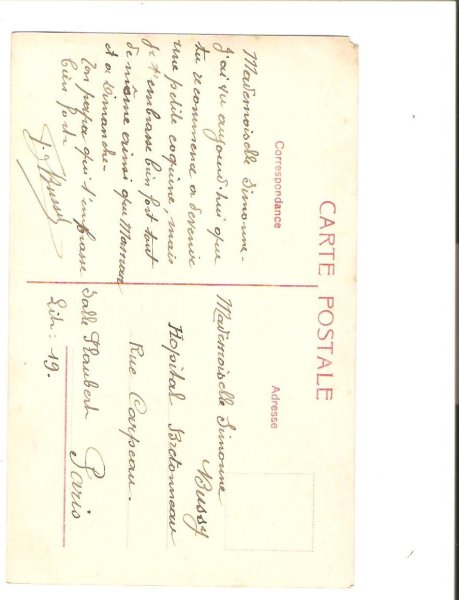 CARTE POSTALE
Correspondance
Mademoiselle Simonne -
J'ai su aujourd'hui que
tu recommence a devenir
une petite coquine, mais
je t'embrasse bien fort tout
de même ainsi que Maman
et a Dimanche -
Ton papa qui t'embrasse
bien fort.
Bussy
Adresse
Mademoiselle Simonne
Bussy
Hopital Bretonneau
Rue Carpeau.
Salle Flaubert Paris
Lit : 19.